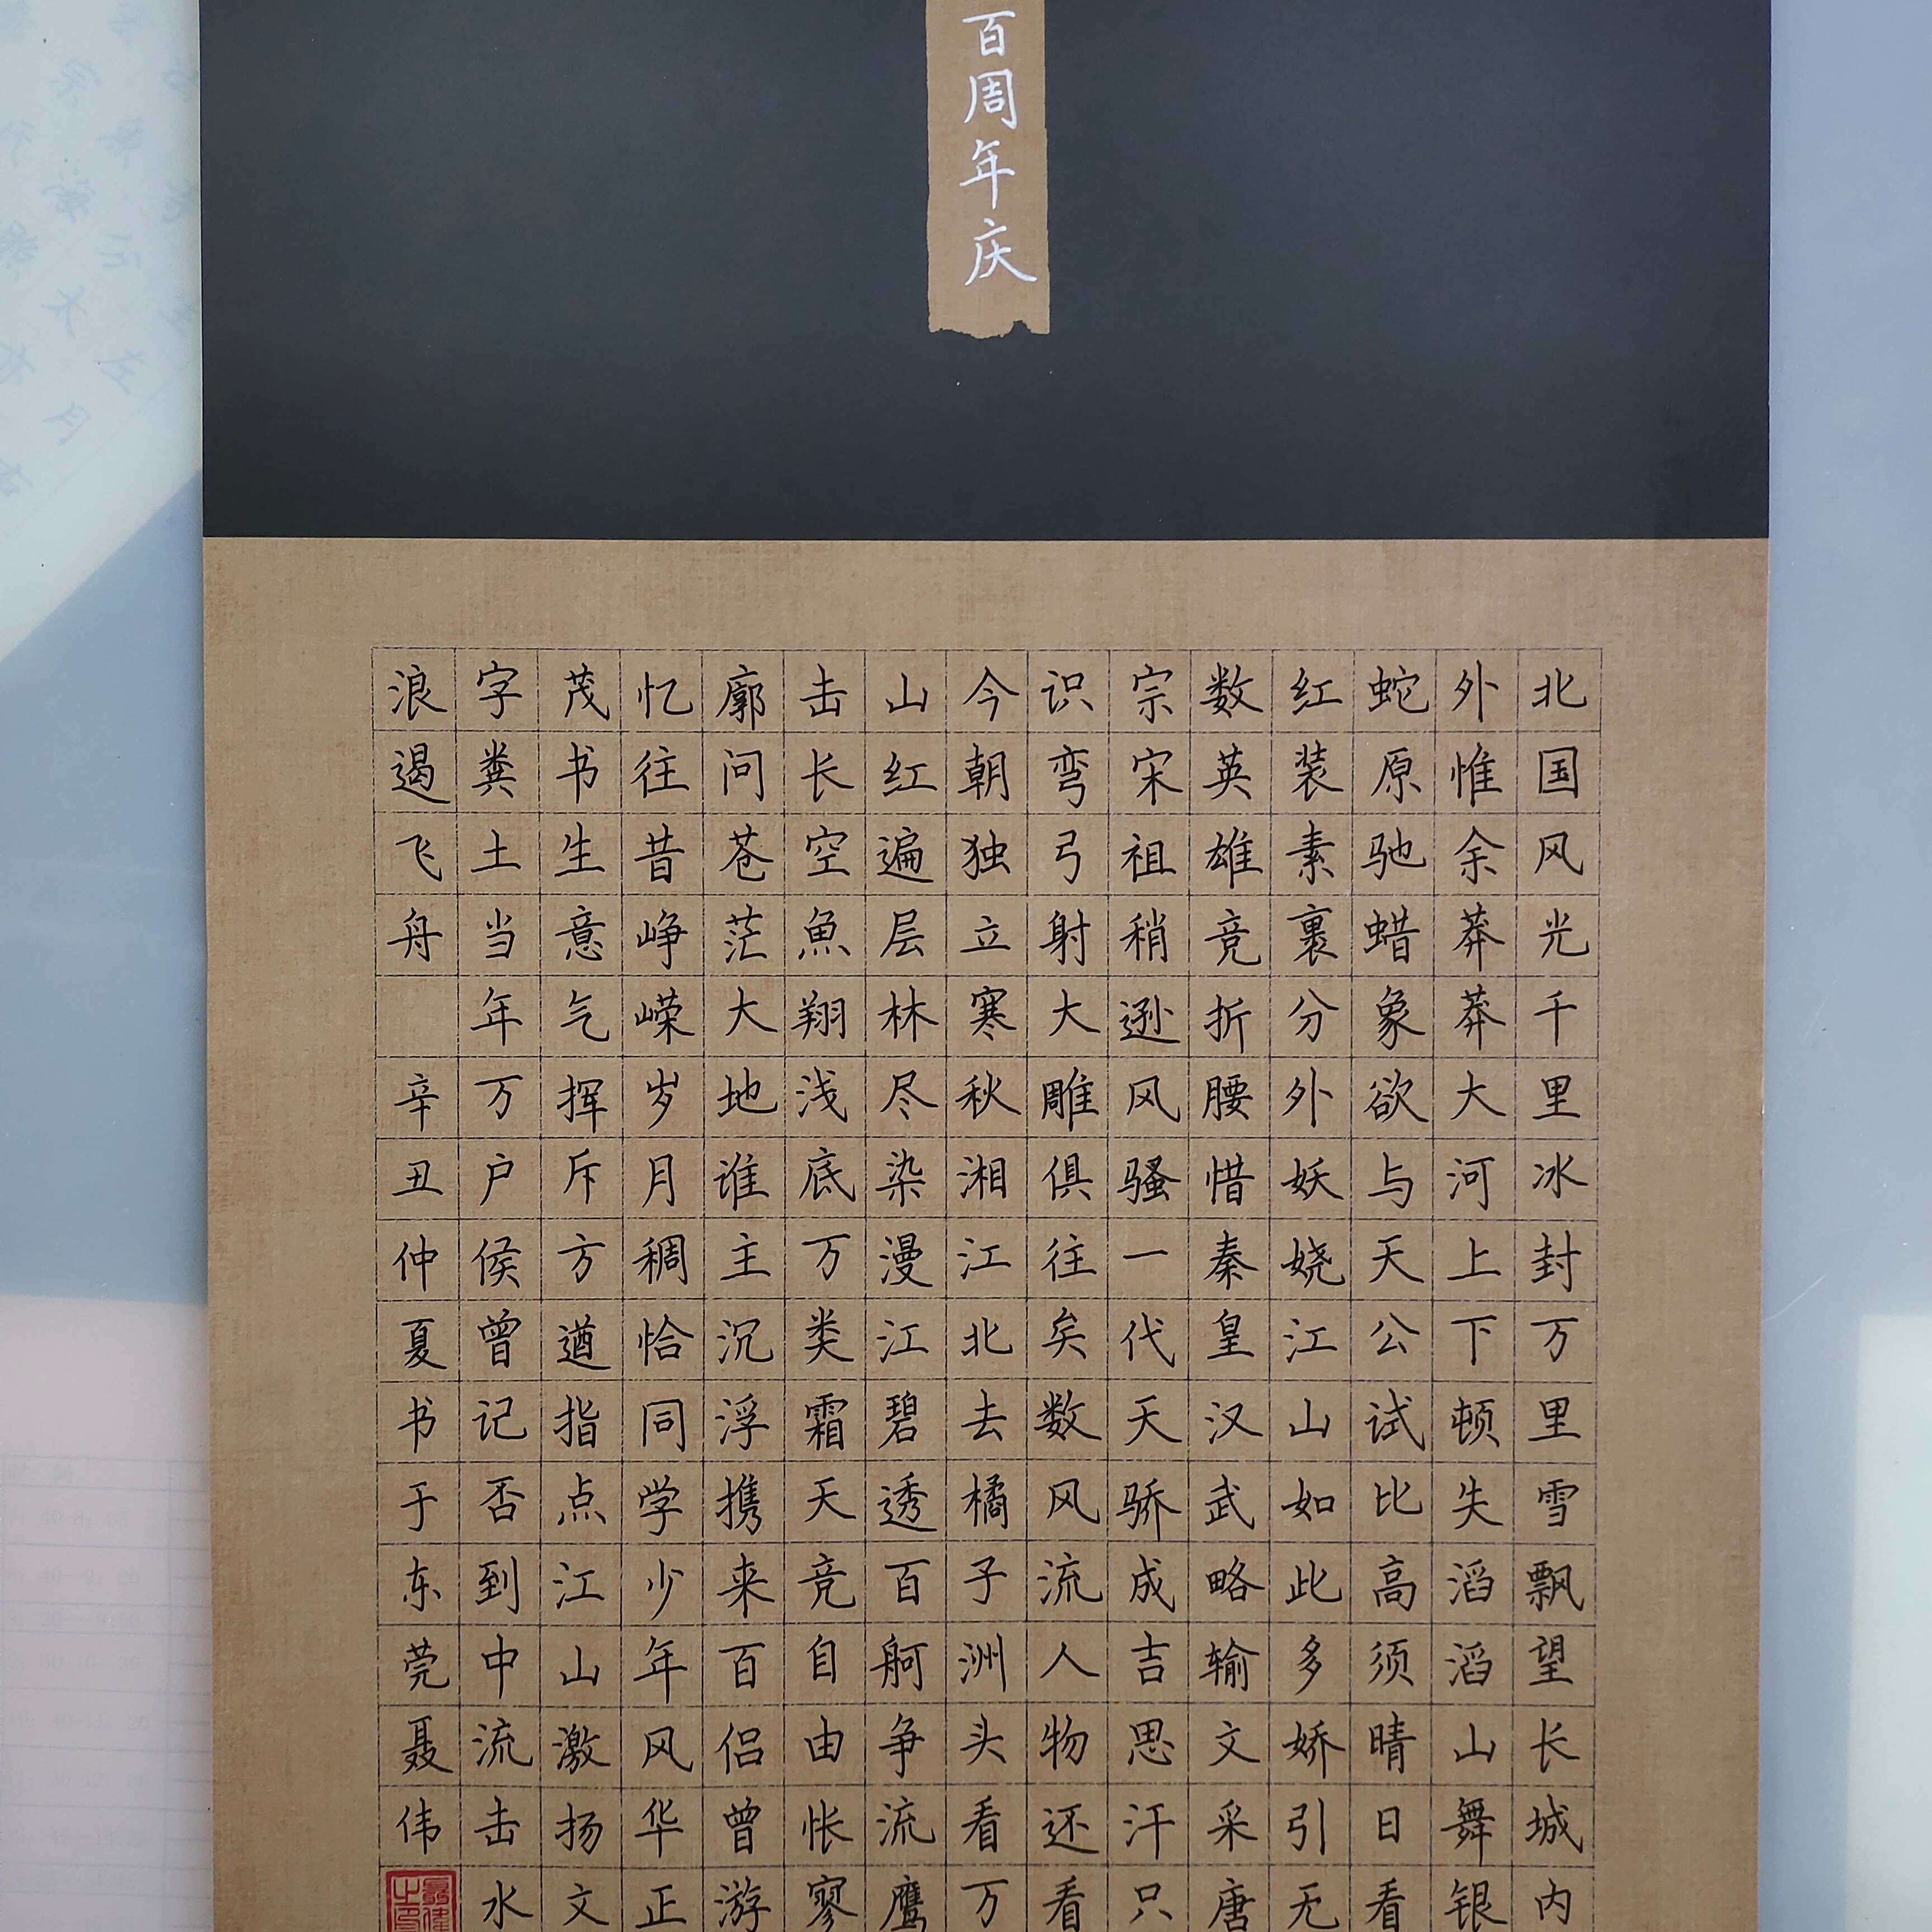 百周年庆
北国风光千里冰封万里雪飘望长城内
外惟余莽莽大河上下顿失滔滔山舞银
蛇原驰蜡象欲与天公试比高须晴日看
红装素裹分外妖娆江山如此多娇引无
数英雄竞折腰惜秦皇汉武略输文采唐
宗宋祖稍逊风骚一代天骄成吉思汗只
识弯弓射大雕俱往矣数风流人物还看
今朝独立寒秋湘江北去橘子洲头看万
山红遍层林尽染漫江碧透百舸争流鹰
击长空魚翔浅底万类霜天竞自由怅寥
廓问苍茫大地谁主沉浮携来百侣曾游
忆往昔峥嵘岁月稠恰同学少年风华正
茂书生意气挥斥方遒指点江山激扬文
字粪土当年万户侯曾记否到中流击水
浪遏飞舟 辛丑仲夏书于东莞聂伟